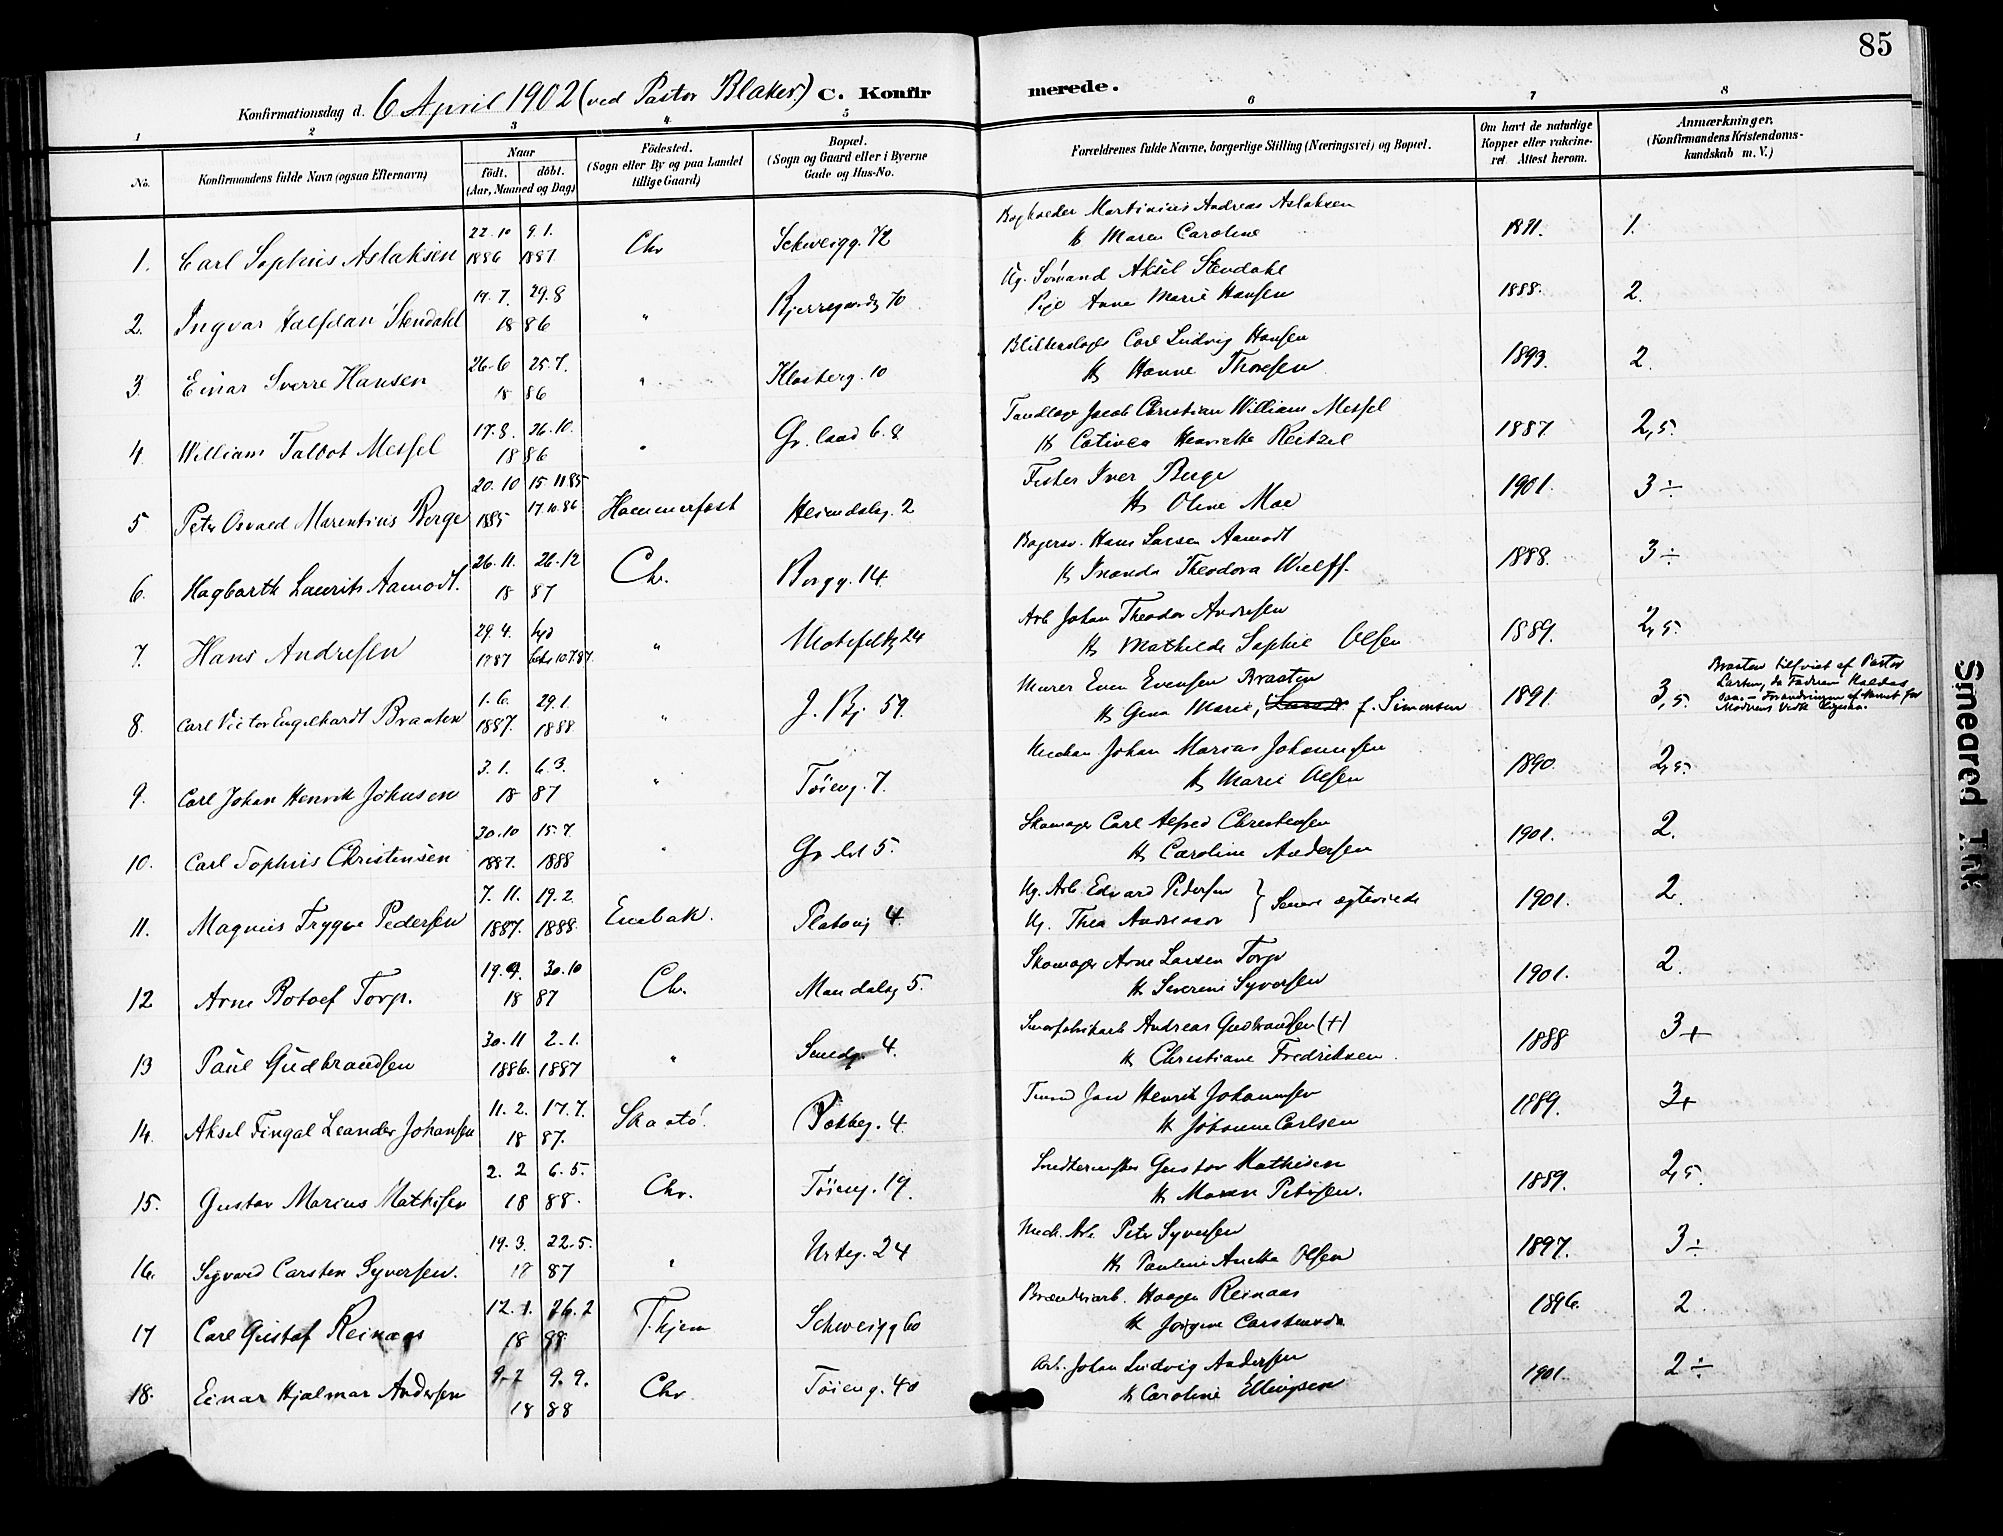 85
Konfirmationsdag d. 6 April 1902 (ved Pastor Blaker.) C. Konfirmerede.
1 2 3 4 5 6 7 8
No.
Konfirmandens fulde Navn (ogsaa Efternavn)
Naar
født. døbt.
(Aar, Maaned og Dag)
Fødested.
(Sogn eller By og paa Landet
tillige Gaard)
Bopæl.
(Sogn og Gaard eller i Byerne
Gade og Hus-No.
Forældrenes fulde Navne, borgerlige Stilling (Næringsvei) og Bopæl.
Om havt de naturlige
Kopper eller vakcine-
ret. Attest herom.
Anmærkninger.
(Konfirmandens Kristendoms-
kundskab m. V.)
22.10 9.1. Bogholder Martinius Andreas Aslaksen
1. Carl Sophus Aslaksen 1886 1887 Chr Schweigg. 72 H Maren Caroline 1891. 1.
17.7. 29.8 Ug. Sømand Aksel Stendahl
2. Ingvar Halfdan Stendahl 18 86 " Bjerregaardsg 70 Pige Anna Marie Hansen 1888. 2.
26.6 25.7. Blikkenslager Carl Ludvig Hansen
3. Einar Sverre Hansen 18 86 " Klosterg. 10 H Hanne Thoresen 1893. 2.
17.8. 26.10. Tandlæge Jacob Christian William Messel
4. William Talbot Messel 18 86 " Gr. land 6.8 H Cativca Henriette Reitzel 1887 2,5.
20.10 15.11 85 Fisker Iver Berge
5 Peter Osvald Marentius Berge 1885 17.10.86 Hammerfest Heimdalsg. 2 H Oline Moe 1901. 3÷
26.11. 26.12 Bagersv. Hans Larsen Aamodt
6. Hagbarth Laurits Aamodt. 18 87 Chr. Borgg. 14 H Inanda Theodora Wulff. 1888. 3÷
29.4. Arb Johan Theodor Andresen
7. Hans Andresen 1887 bekr 10.7.87. " Motzfeldtsg 24 H Mathilde Sophie Olsen 1889. 2,5.
1.6. 29.1. Murer Even Evensen Braaten
8. Carl Victor Engelhardt Braaten 1887. 1888 " J. Bj. 59. H Gina Marie, f. Simonsen 1891. 3,5
Braaten tilføiet af Pastor
Larsen, da Faderen kaldes
saa. – Forandringen af Navnet for
3.1. 6.3. Mechan Johan Marius Johannesen
9. Carl Johan Henrik Johnsen 18 87 " Tøieng. 7. H Marie Olsen 1890 2,5.
30.10 15.7. Skomager Carl Alfred Christensen
10. Carl Sophus Christensen 1887. 1888 " Gr. ld 5. H Caroline Andersen 1901. 2.
7.11. 19.2. Ug. Arb. Edvard Pedersen } Senere ægteviede
11. Magnus Trygve Pedersen 1887. 1888. Enebak. Platoug 4. Ug. Thea Andreasen 1901. 2.
19.9. 30.10 Skomager Arne Larsen Torp
12 Arne Botolf Torp. 18 87 Chr. Mandalsg 5. H Severine Syversen 1901. 2.
30.11 2.1. Andreas Gudbrandsen (+)
13 Paul Gudbrandsen 1886. 1887 " Smedg. 4. H Christiane Fredriksen. 1888 3+
11.2. 17.7. Jan Henrik Johannesen
14. Aksel Fingal Leander Johansen 18 87. Skaatø. 4. H Johanne Carlsen 1889. 3+
2.2 6.5. Snedkermester Gustav Mathisen
15. Gustav Marius Mathisen 18 88. Chr. Tøieng. 19. H Maren Petersen. 1889. 2,5.
19.3. 22.5. Mech. Arb. Peter Syversen
16. Sigvard Carsten Syversen. 18 87 " Urteg. 24 H Pauline Anette Olsen 1897. 3÷
12.1. 26.2 Brænderiarb. Haagen Reinaas
17 Carl Gustaf Reinaas 18 88 T.hjem Schweigg 60 H Jorgine Carstensda 1896. 2
9.9. Arb. Johan Ludvig Andersen
18. Einar Hjalmar Andersen 18 88 Chr. Tøieng. 40 H Caroline Ellingsen 1901. 2÷
Smeared Ink